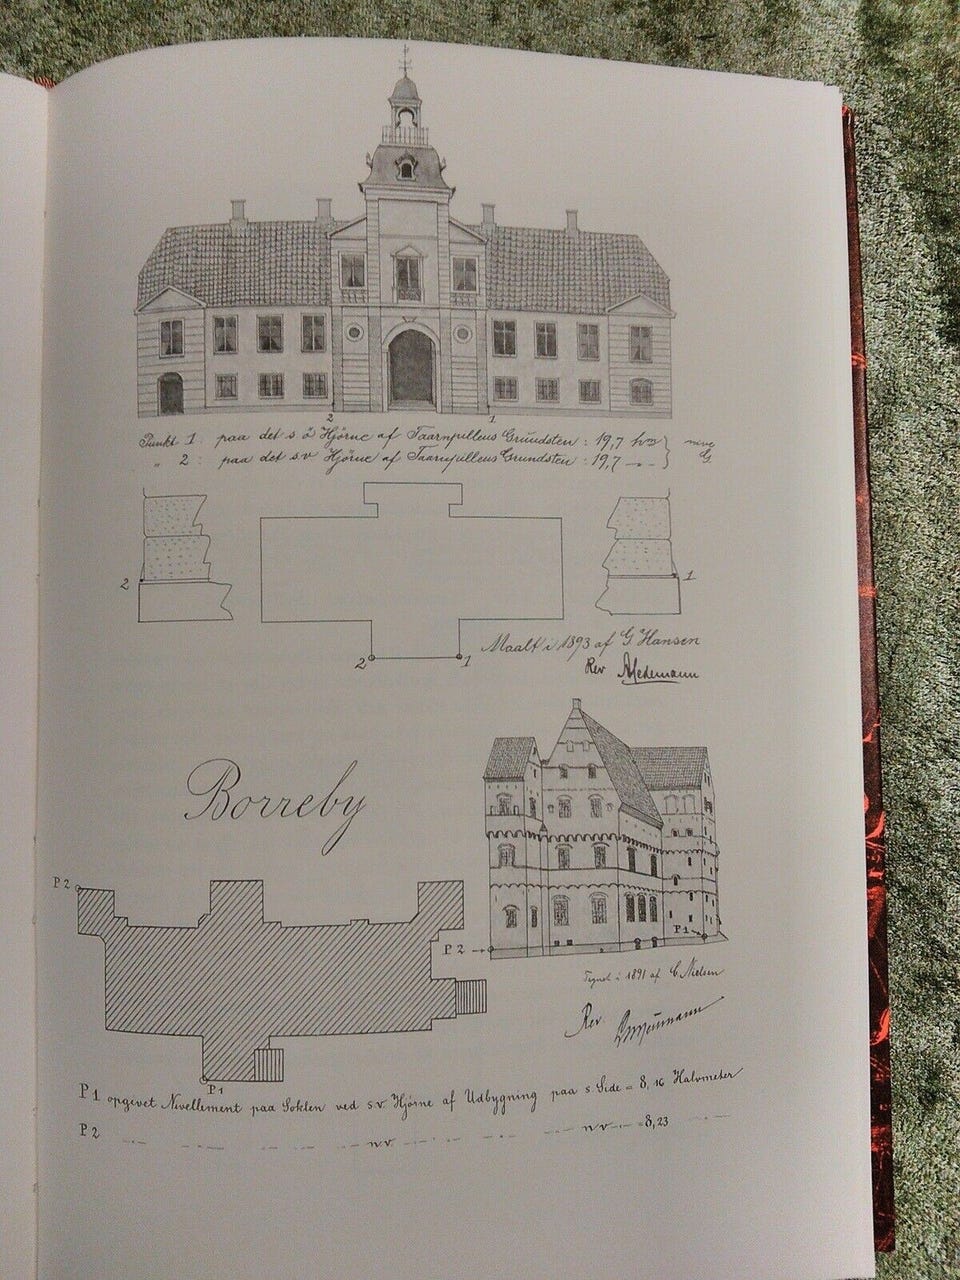 2 1
Punkt 1 : paa det s.ö Hjörne af Taarnpillens Grundsten : 19,7 hm
" 2 : paa det s.v Hjörne af Taarnpillens Grundsten : 19,7 — " —
2 1
2 1
Maalt i 1893 af G Hansen
Rev
Borreby
P 2
P 2 P 1
Tegnet i 1891 af C. Nielsen
Rev.
P 1
P 1 opgivet Nivellement paa Soklen ved s.v. Hjørne af Udbygning paa s Side = 8,16 Halvmeter
P 2 — " — n.v — " — n.v — " — = 8,23